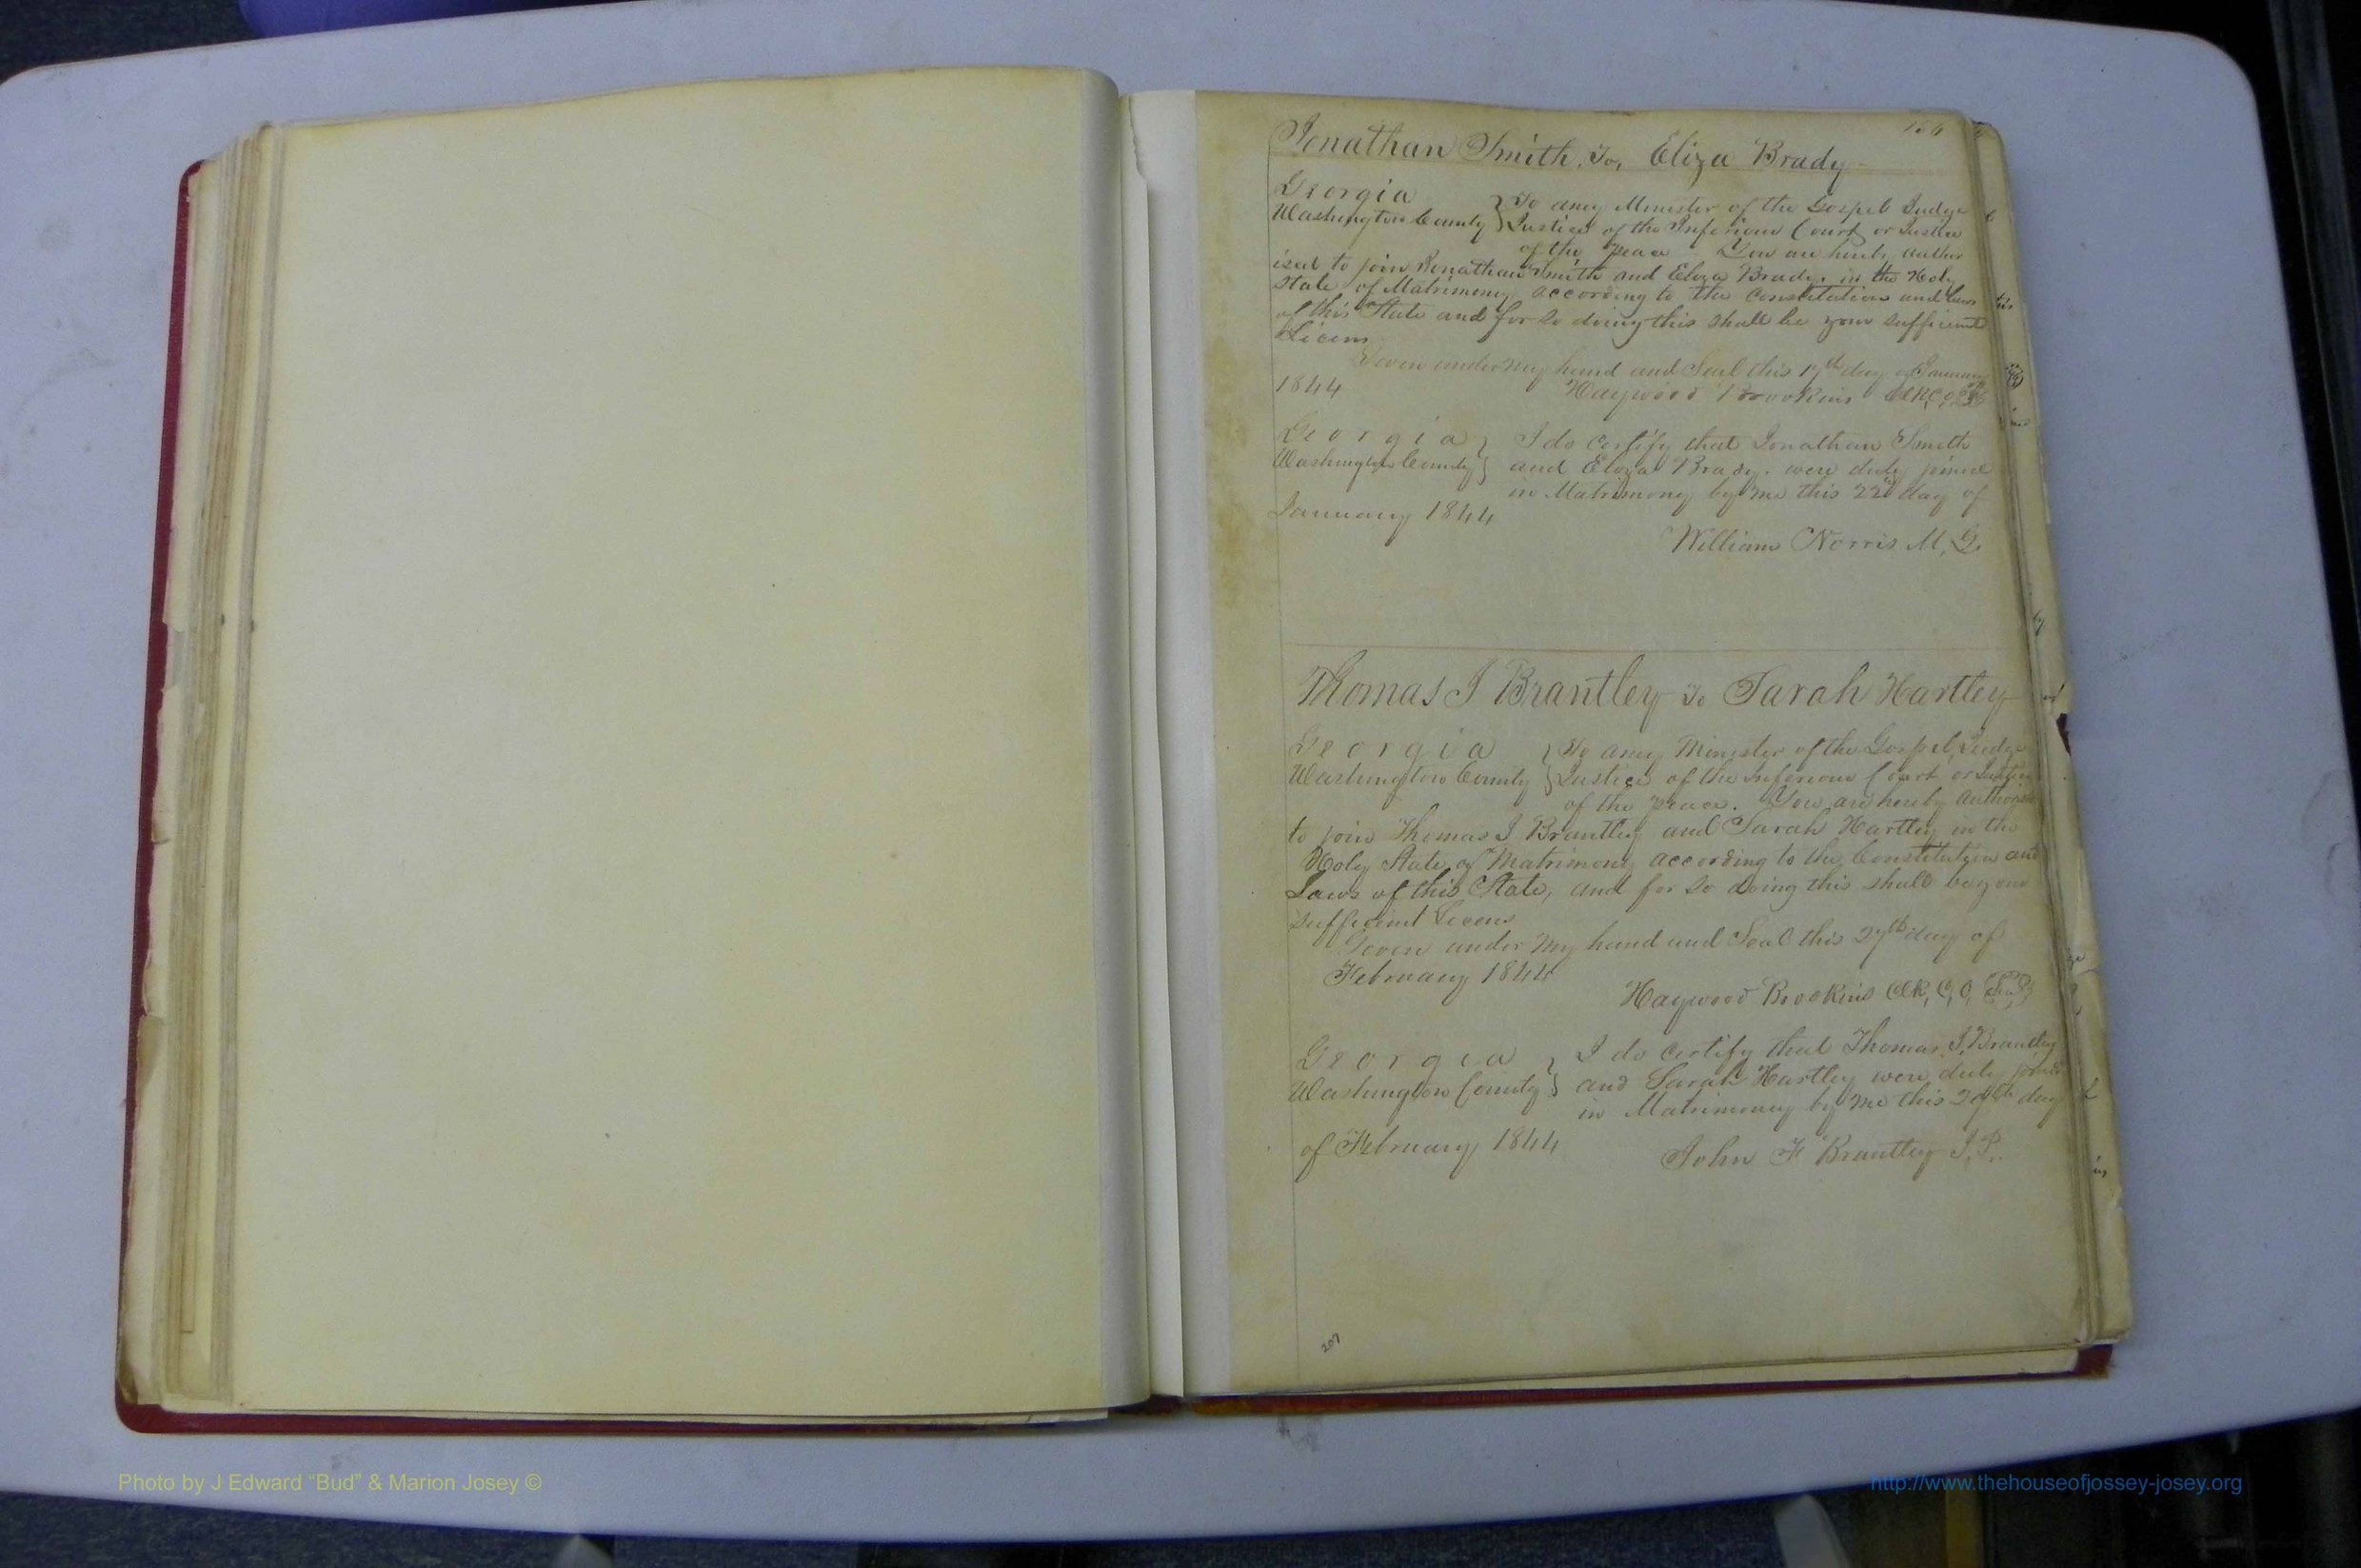 Jonathan Smith, To, Eliza Brady
Georgia } To any Minister of the Gospel Judge
Washington County } Justice of the Inferiour Court or Justice
of the peace You are hereby author
ised to join Jonathan Smith and Eliza Brady, in the Holy
State of Matrimony according to the Constitution and laws
of this State and for so doing this shall be your sufficient
Licens
Given under my hand and Seal this 17th day of January
1844 Haywood Brookins Clk, C, O,
Georgia } I do certify that Jonathan Smith
Washington County } and Eliza Brady. were duly joined
in Matrimony by me this 22d day of
January 1844
William Norris M, G,
Thomas J Brantley To Sarah Hartley
Georgia } To any Minister of the Gospel, Judge
Washington County } Justice of the Inferiour Court or Justice
of the peace. You are hereby Authorised
to join Thomas J Brantley and Sarah Hartley in the
Holy State of Matrimony according to the Constitution and
Laws of this State, and for so doing this shall be your
sufficient Licens
Given under my hand and Seal this 27th day of
February 1844
Haywood Brookins Clk, C, O, Seal
Georgia } I do certify that Thomas J, Brantley
Washington County } and Sarah Hartley were duly joined
in Matrimony by me this 29th day
of February 1844
John F Brantley J, P.
207
Photo by J Edward “Bud” & Marion Josey ©
http://www.thehouseofjossey-josey.org